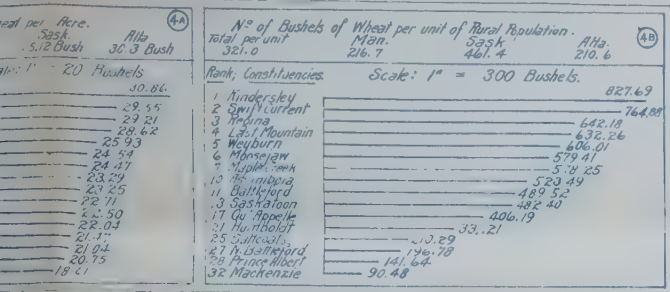 per Acre.
Sask Alta
.5.12 Bush 30.3 Bush
1" = 20 Bushels
4A
30.86
29.55
29.21
28.62
25.93
24.54
24.47
23.29
22.71
22.04
21.04
20.75
18.61
Nº of Bushels of Wheat per unit of Rural Population.
4B
Total per unit Man. Sask Alta.
321.0 216.7 461.4 210.6
Rank; Constituencies. Scale: 1" = 300 Bushels.
1 Kindersley 827.69
2 Swift Current 764.88
3 Regina 642.18
4 Last Mountain 632.26
5 Weyburn 606.01
6 Moosejaw 579.41
Maple Creek
10 Assiniboia 523.49
11 Battleford 489.52
13 Saskatoon 482.40
17 Qu'Appelle 406.19
21 Humboldt
25 Saltcoats
27 N. Battleford 196.78
28 Prince Albert 141.64
32 Mackenzie 90.48